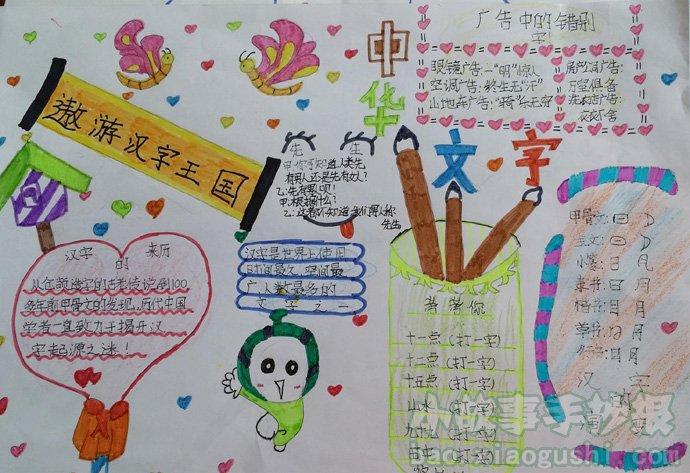 遨游汉字王国
中华
文·字
广告中的错别
字
眼镜广告:一"明"惊人
空调广告:终生无"汗"
山地车广告:"骑"乐无穷
房产公司广告:
万室俱备
洗衣店广告:
衣衣不舍
先 生
乙:先有男人吧!
甲:根据什么?
先生
汉字 来历
的
从仓颉造字的古老传说到100
多年前甲骨文的发现,历代中国
学者一直致力于揭开汉
字起源之谜!
汉字是世界上使用
时间最久、空间最
广、人数最多的
文字之一
考考你
十一点(打一字)
十二点(打一字)
十五点(打一字)
山水(打一字)
九十九(打一字)
甲骨文:日
金文:日
小篆:日
隶书:日月
楷书:日月
草书:日月
行书:日月
汉字
演
小故事手抄报
xiaogushi.com